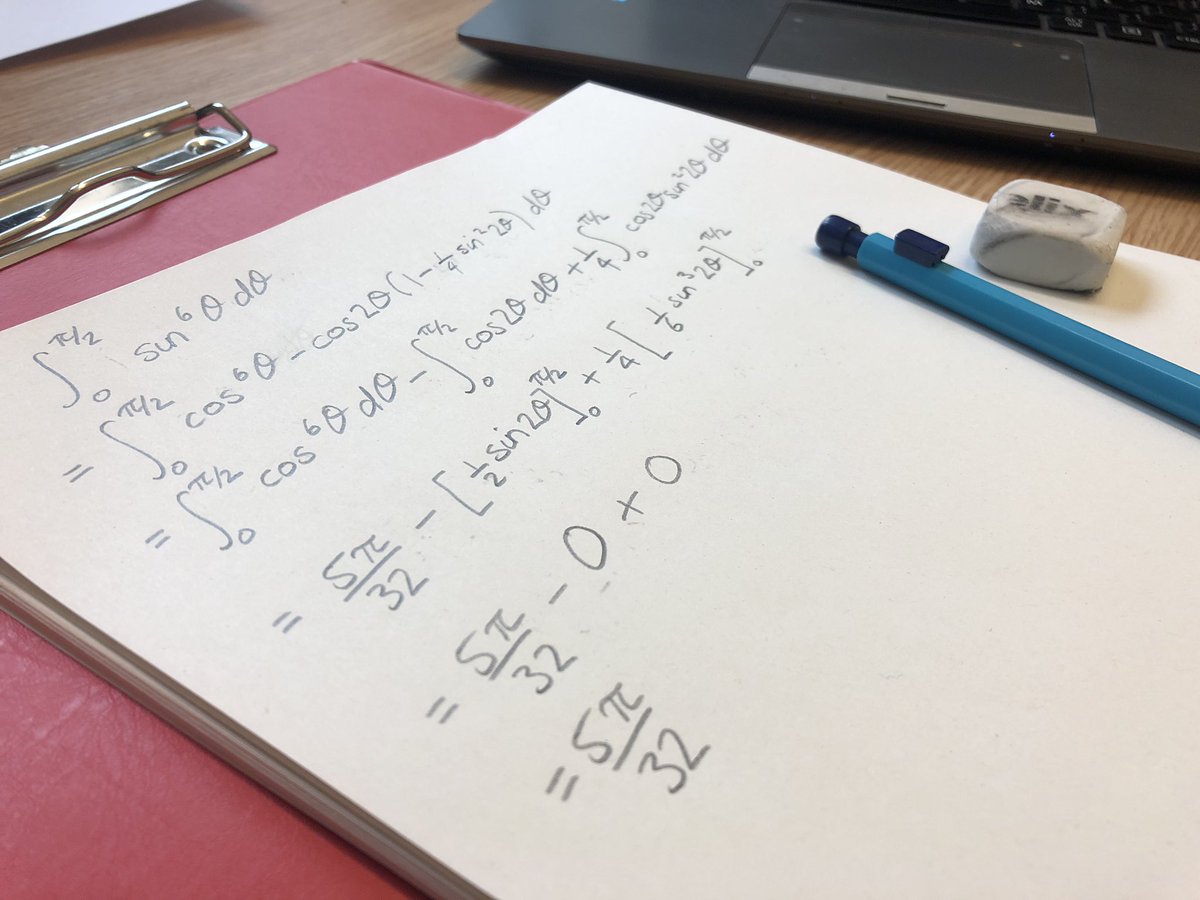 ∫₀^π/2 sin⁶θ dθ
= ∫₀^π/2 cos⁶θ - cos2θ(1 - 1/4 sin²2θ) dθ
= ∫₀^π/2 cos⁶θ dθ - ∫₀^π/2 cos2θ dθ + 1/4 ∫₀^π/2 cos2θ sin²2θ dθ
= 5π/32 - [1/2 sin2θ]₀^π/2 + 1/4 [1/6 sin³2θ]₀^π/2
= 5π/32 - 0 + 0
= 5π/32